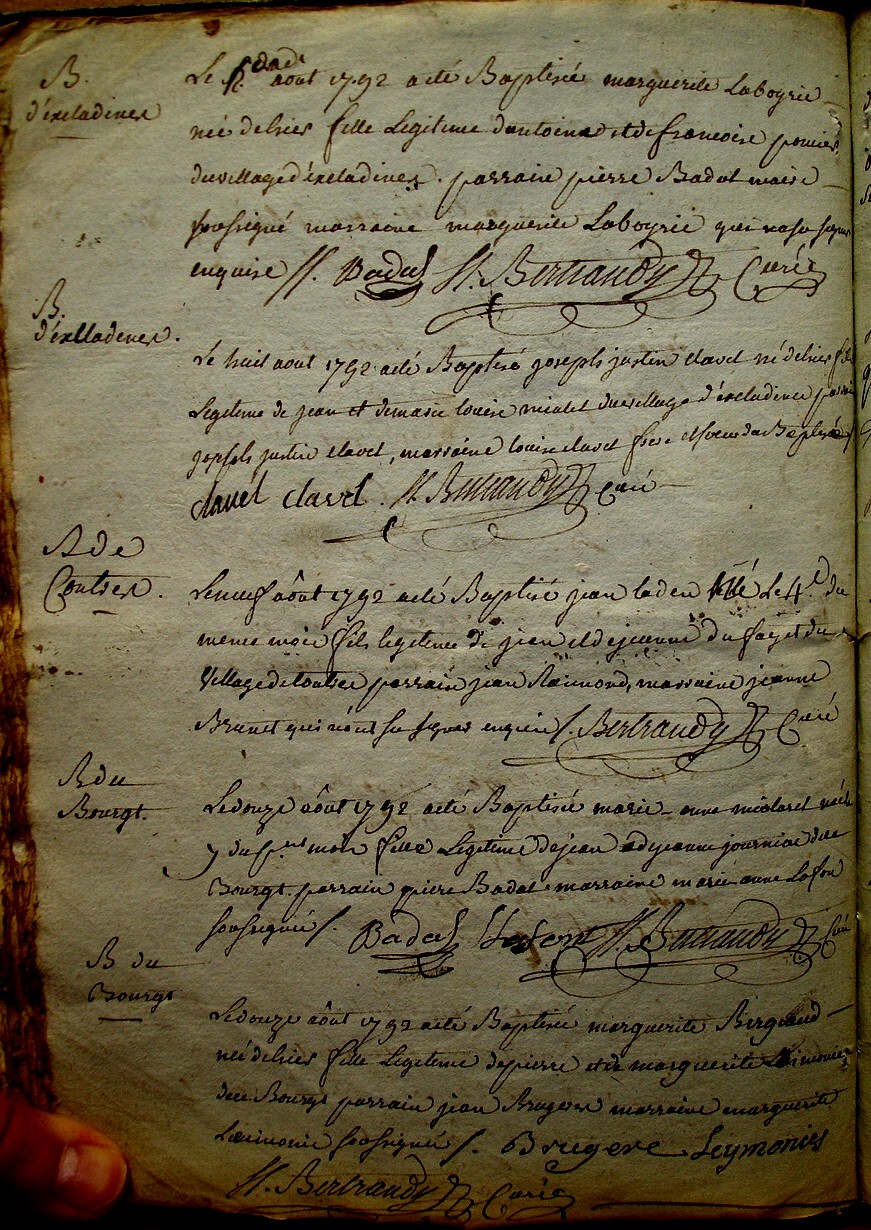 B.
d'excladines
Le août 1792 a été Baptisée marguerite Laboyrie
née dehier fille Legitime dantoine et de francoise
du village d'excladines. parrain pierre Badal maire
soussigné marraine marguerite Laboyrie qui na su signer
enquise /. Badal /. Bertrandy Curé
B.
d'excladines.
Le huit aout 1792 a été Baptisé joseph justin clavel né dehier fils
Legitime de jean et de marie louise mialet du village d'excladines parrain
joseph justin clavel, marraine louise clavel frere et soeur du Baptisé /
clavél clavel. Bertrandy Curé
B de
Coutsex.
Le neuf aôut 1792 a été Baptisé jean né Le 4.e du
meme mois fils legitime de jean et de jeanne du fayet du
village de parrain jean Raimond, marraine jeanne
Brunet qui n'ont su signer enquis /. Bertrandy Curé
B du
Bourgt.
Le douze aôut 1792 a été Baptisée marie-anne née le
7 du p.nt mois fille Legitime de jean et de jeanne journiac du
Bourgt. parrain piere Badal marraine marie anne Lafon
soussignés /. Badal Bertrandy Curé
B du
Bourgt
Le douze aôut 1792 a été Baptisée marguerite
née dehier fille Legitime de pierre et de marguerite
du Bourgt parrain jean Brugere marraine marguerite
soussignés /. Brugere Leymonies
Bertrandy Curé